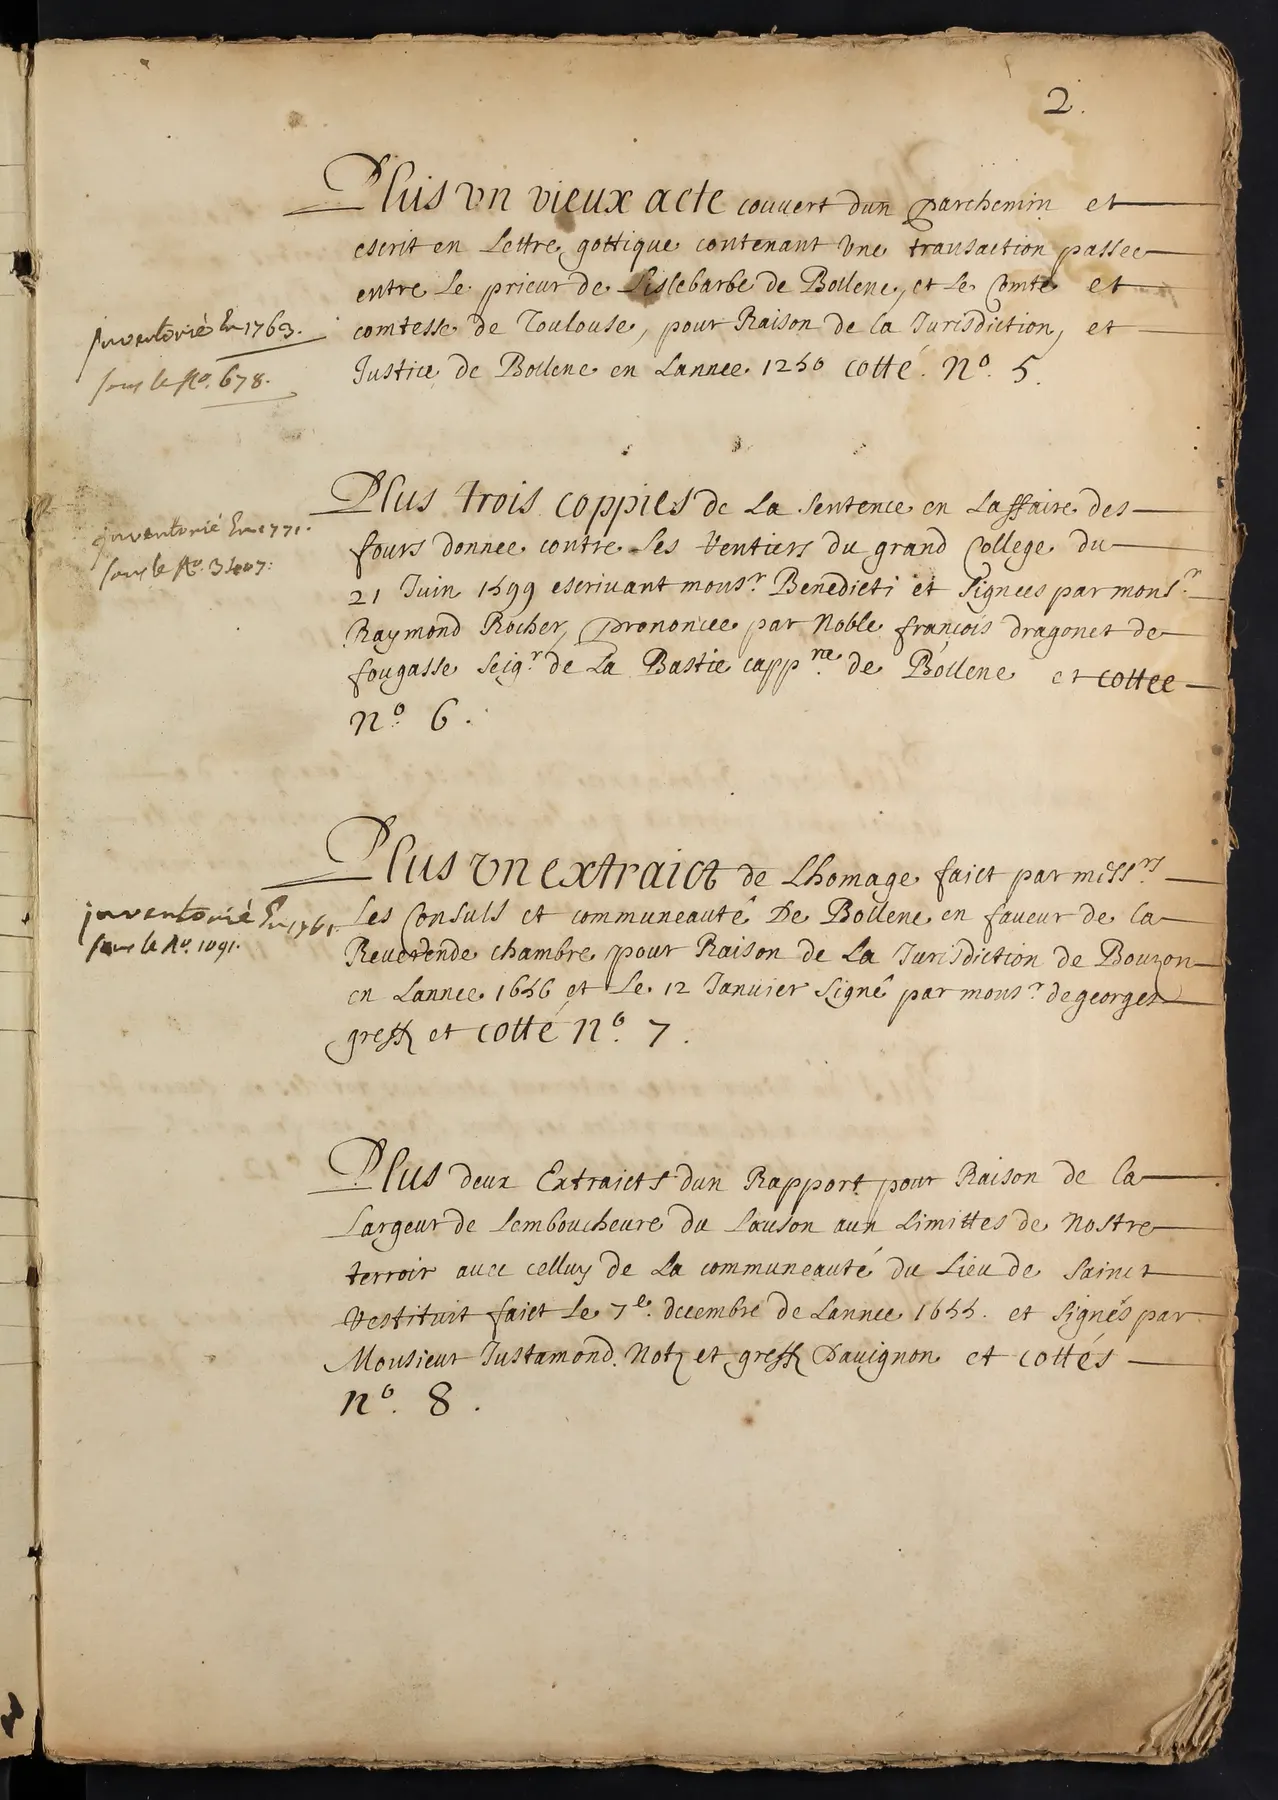 2.
Plus vn vieux acte couuert dun parchemin et
escrit en Lettre gottique contenant vne transaction passee
entre Le prieur de Lislebarbe de Bollene, et Le Comte et
comtesse de Toulouse, pour Raison de la Jurisdiction, et
Justice de Bollene en Lannee 1250 cotté. N.º 5.
inventorié En 1763.
sous le No. 678.
Plus trois coppies de La sentence en Laffaire des
fours donnee contre Les Ventiers du grand College du
21 Juin 1599 escriuant mons.r Benedicti et signees par mons.r
Raymond Rocher, prononcee par Noble françois dragonet de
fougasse seig.r de La Bastie capp.ne de Bollene et cottee
n.º 6.
inventorié En 1771.
sous le No. 3407.
Plus vn extraict de Lhomage faict par mess.rs
Les Consuls et communeauté De Bollene en faueur de la
Reuerende chambre pour Raison de La Jurisdiction de Bouzon
en Lannee 1656 et Le 12 Januier signé par mons.r de georges
greff et cotté n.º 7.
inventorié En 1761.
sous le No. 1091.
Plus deux Extraicts dun Rapport pour Raison de la
Largeur de Lemboucheure du Lauson aux Limittes de Nostre
terroir auec celluy de La communeauté du Lieu de sainct
Restituit faict Le 7e. decembre de Lannee 1655. et signés par
Monsieur Justamond. Not et greff Dauignon et cottés
n.º 8.